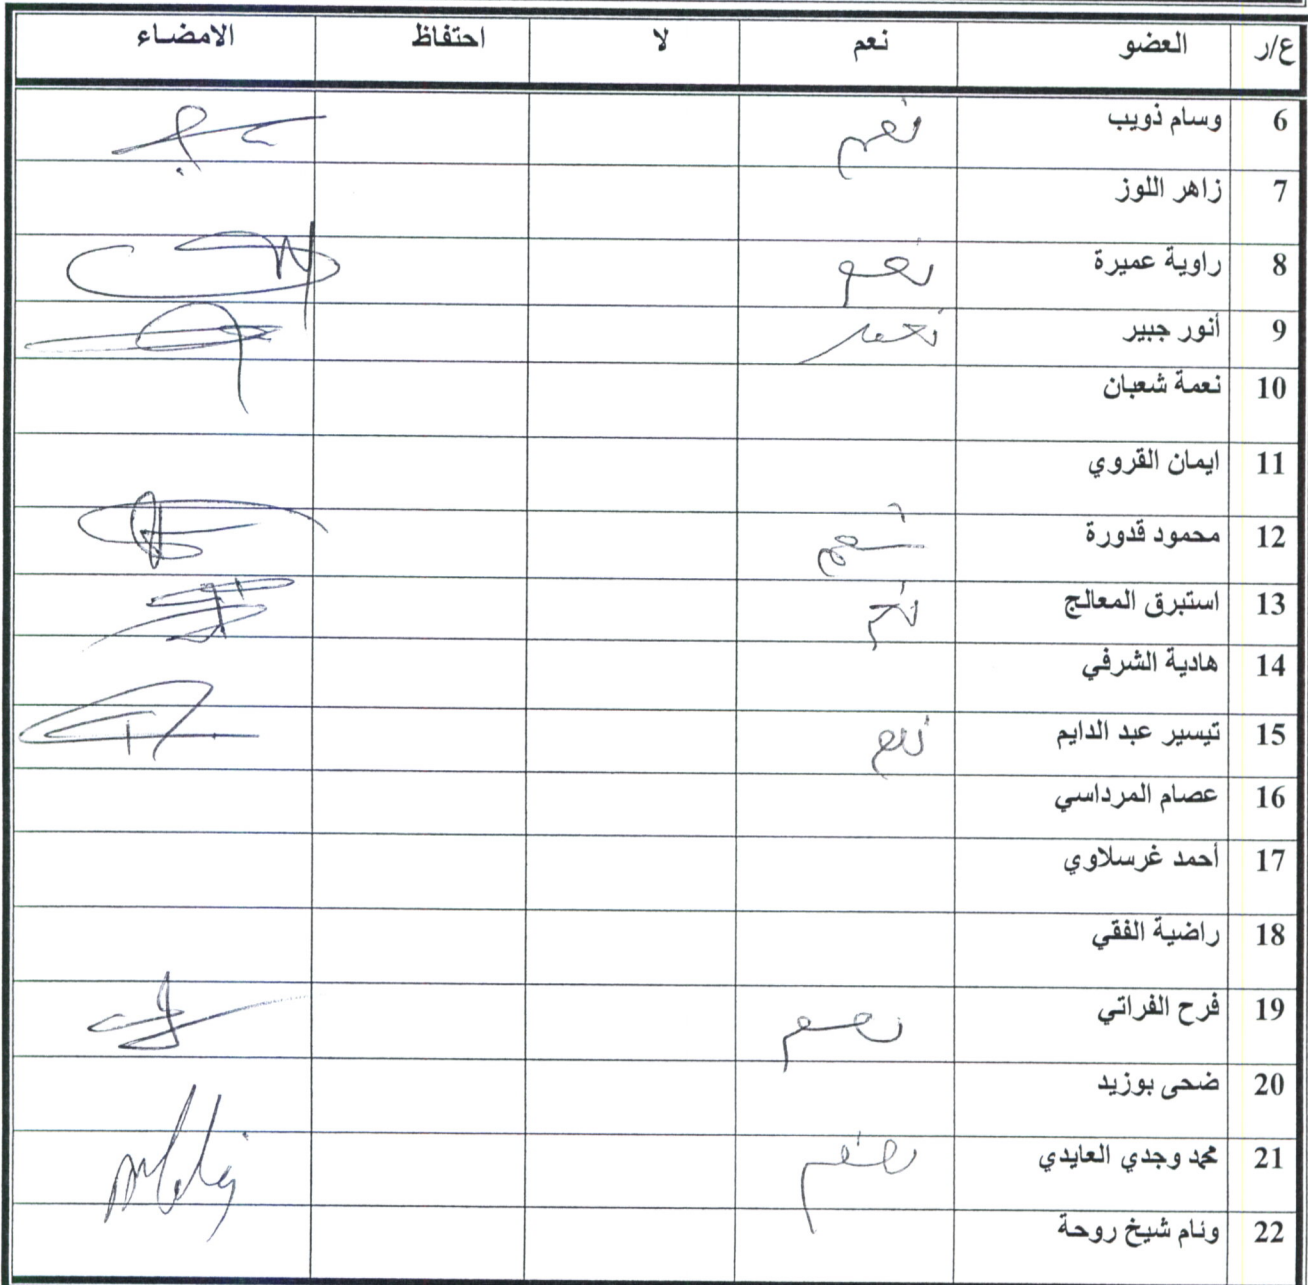 ع/ر العضو نعم لا احتفاظ الامضاء
6 وسام ذويب نعم
7 زاهر اللوز
8 راوية عميرة نعم
9 أنور جبير نعم
10 نعمة شعبان
11 ايمان القروي
12 محمود قدورة نعم
13 استبرق المعالج نعم
14 هادية الشرفي
15 تيسير عبد الدايم نعم
16 عصام المرداسي
17 أحمد غرسلاوي
18 راضية الفقي
19 فرح الفراتي نعم
20 ضحى بوزيد
21 محمد وجدي العايدي نعم
22 ونام شيخ روحة